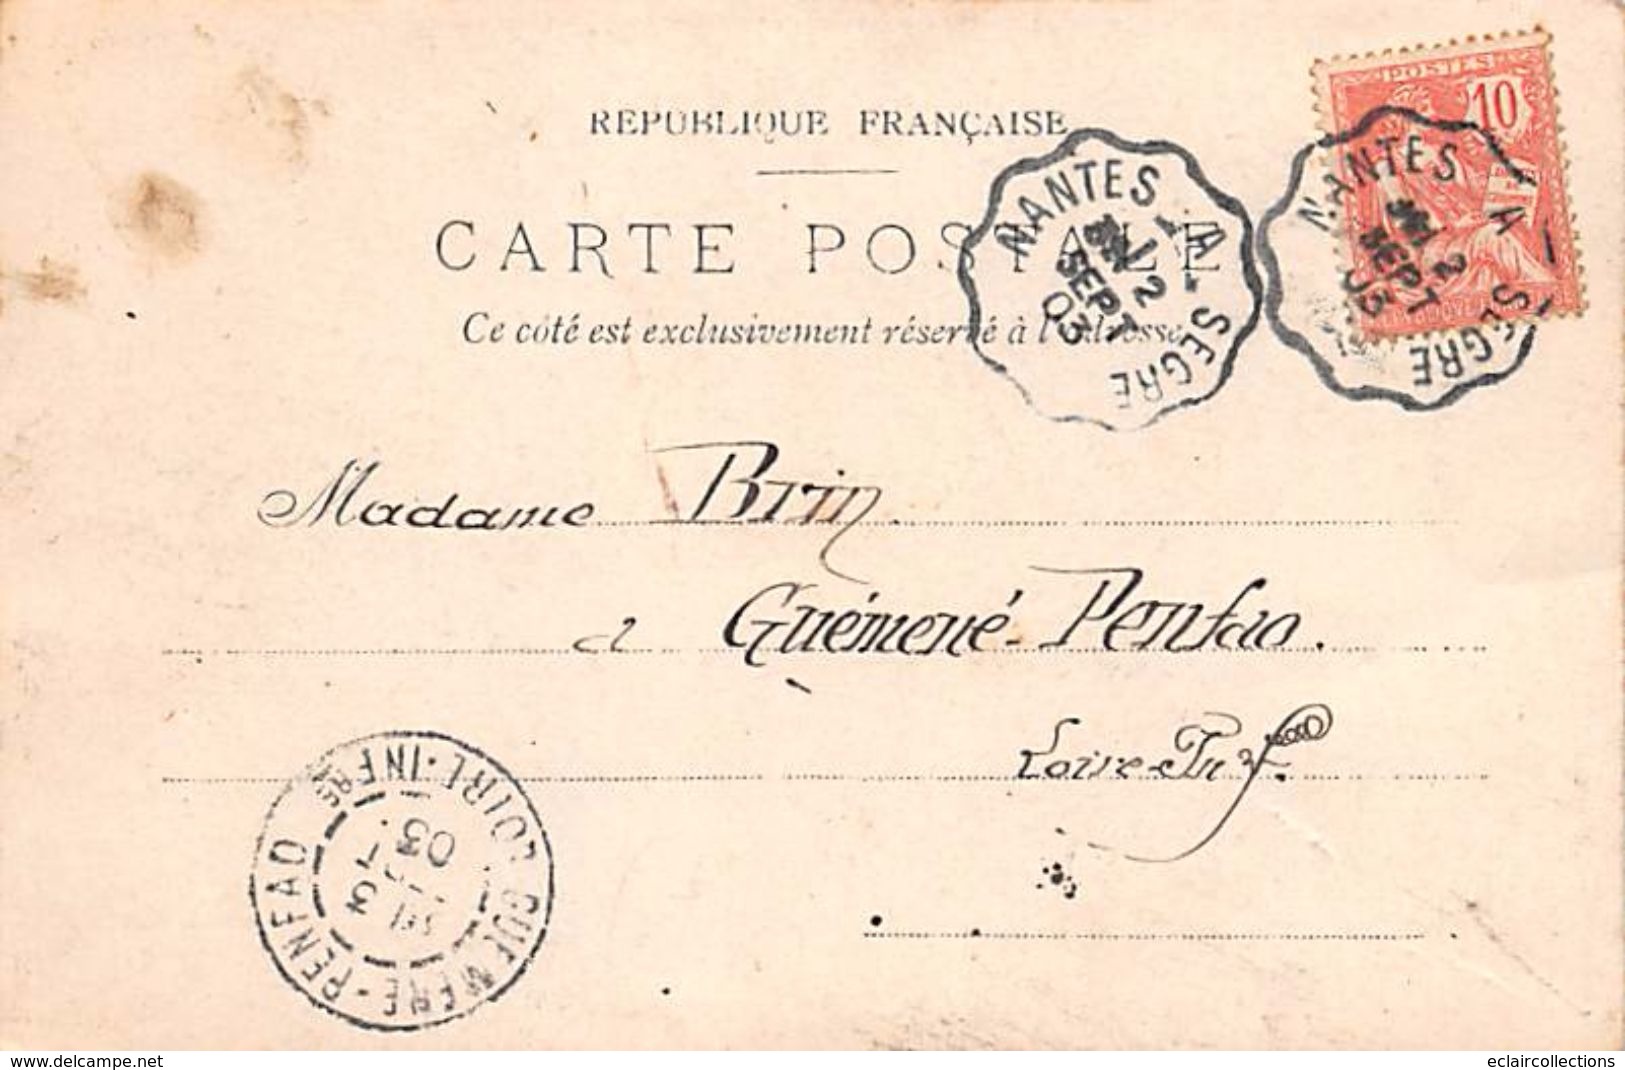 RÉPUBLIQUE FRANÇAISE
CARTE POSTALE
Ce côté est exclusivement réservé à l'adresse
POSTES
10
NANTES A SEGRE
2
SEPT
03
NANTES A SEGRE
2
SEPT
03
Madame Brin
à Guémené-Penfao.
Loire-Inf.
GUEMENE-PENFAO LOIRE-INFRE
3
03
www.delcampe.net
eclaircollections